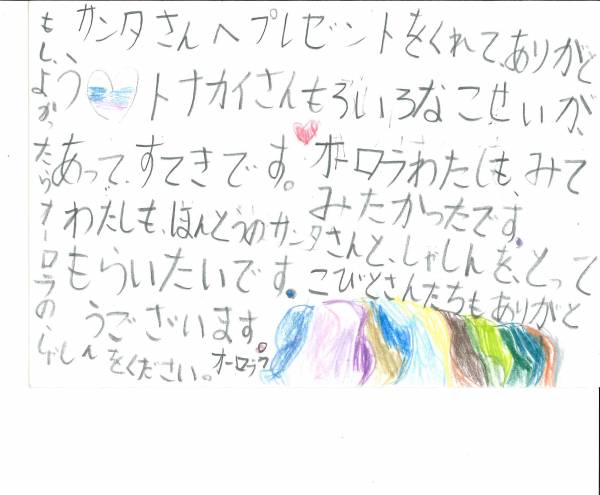 サンタさんへプレゼントをくれて、ありがと
う トナカイさんもろいろなこせいが、
あって、すてきです。オーロラわたしも、みて
みたかったです。
わたしも、ほんとうのサンタさんと、しゃしんを、とって
もらいたいです。こびとさんたちもありがと
うございます。
もし、よかったらオーロラのしゃしん
をください。
オーロラ